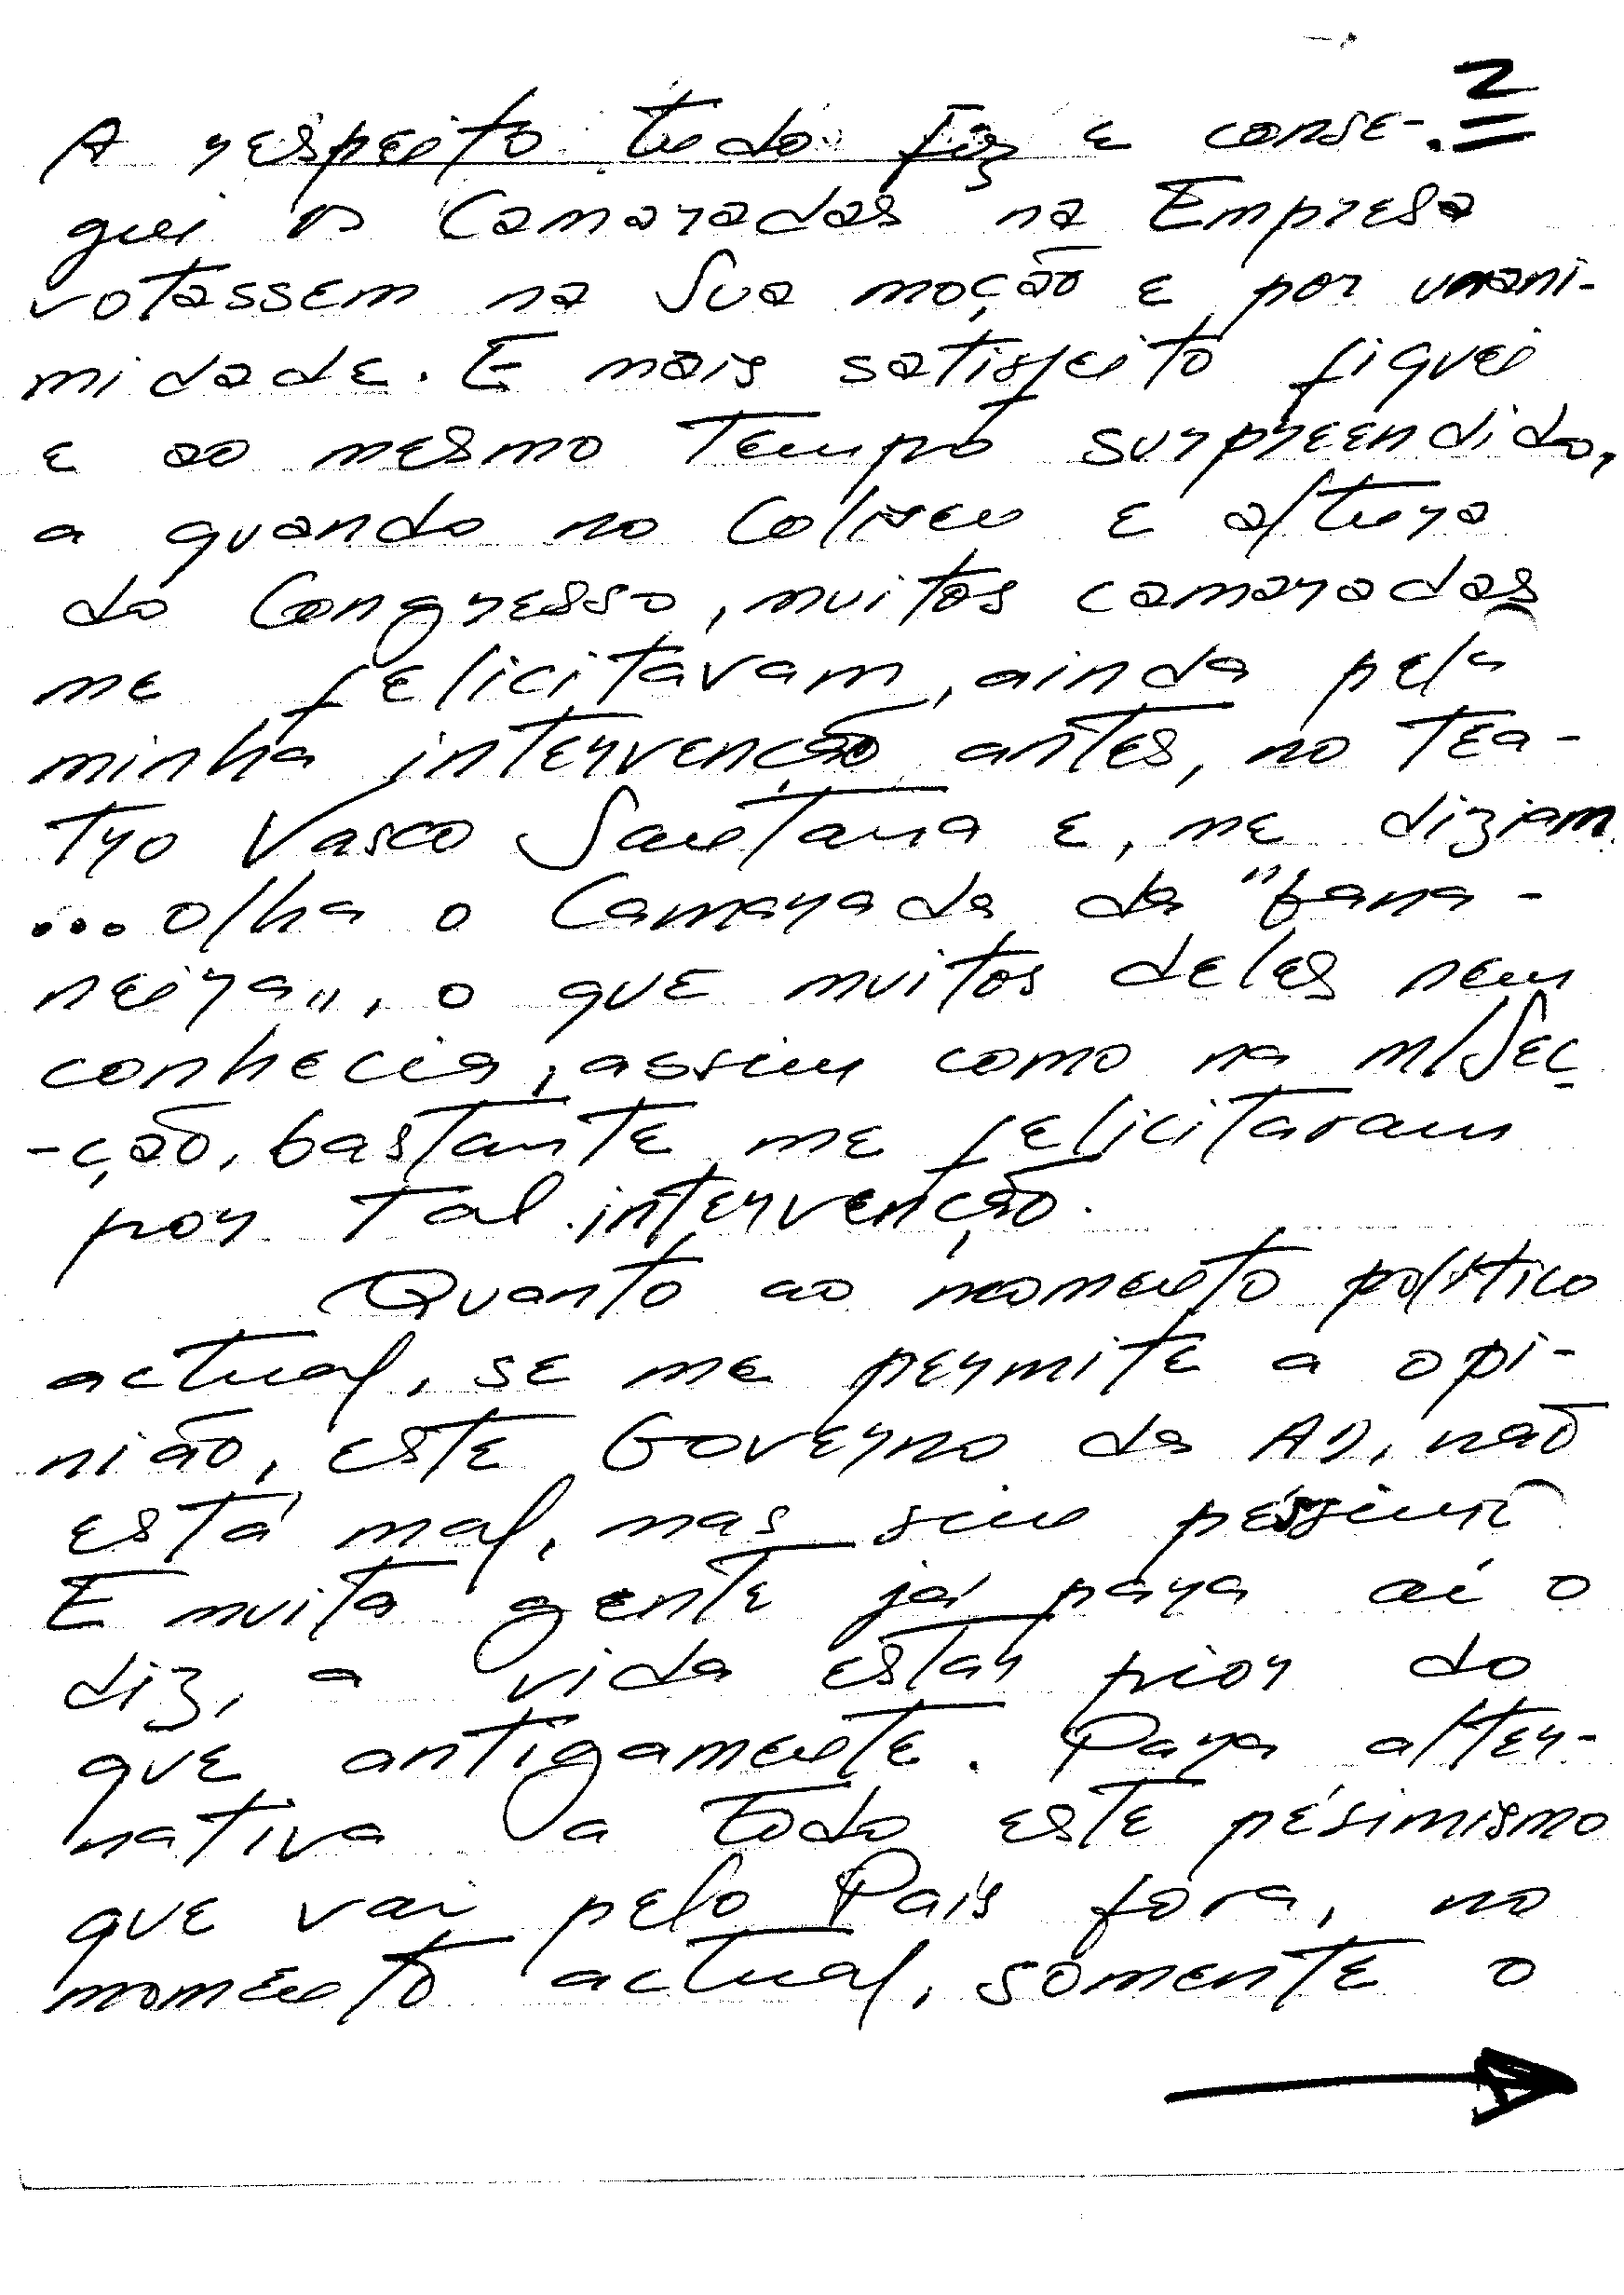 2
A respeito tudo fiz e conse-
guei os Camaradas na Empresa
votassem na Sua moção e por unani-
midade. E mais satisfeito fiquei
e ao mesmo tempo surpreendido,
a quando no Coliseu e altura
do Congresso, muitos camaradas
me felicitavam, ainda pela
minha intervenção antes, no Tea-
tro Vasco Santana e, me diziam
...olha o Camarada da "fana-
neira", o que muitos deles nem
conhecia, assim como na m/Sec
-ção, bastante me felicitaram
por tal intervenção.
Quanto ao momento político
actual, se me permite a opi-
nião, este Governo da AD, não
está mal, mas sim péssimo
E muita gente já para aí o
diz, a vida estar pior do
que antigamente. Para alter-
nativa a todo este pésimismo
que vai pelo País fora, no
momento actual, sómente o